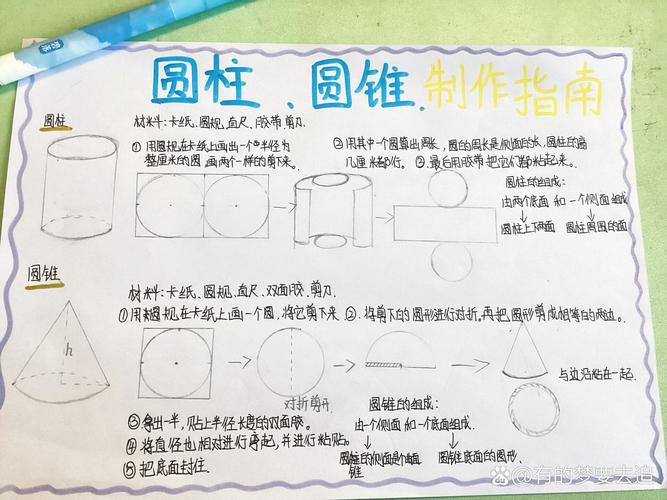 圆柱、圆锥.制作指南
圆柱
材料:卡纸、圆规、直尺、胶带、剪刀.
①用圆规在卡纸上画出一个半径为
整厘米的圆,画两个一样的剪下来。
②用其中一个圆算出周长,圆的周长是侧面的长,圆柱的高
几厘米都行。③最后用胶带把它们都粘起来。
圆柱的组成:
由两个底面和一个侧面组成
圆柱上下两面 圆柱周围的面
圆锥
材料:卡纸、圆规、直尺、双面胶、剪刀.
①用圆规在卡纸上画一个圆,将它剪下来
②.将剪下的圆形进行对折。再把圆形剪成相等的两边。
h
对折剪开
与边沿粘在一起.
③拿出一半,贴上半径长度的双面胶。
④将直径也相对进行弯起,并进行粘贴。
⑤把底面封住.
圆锥的组成:
由一个侧面和一个底面组成.
圆柱的侧面是个曲面 圆锥底面的图形.
锥
@有的梦要去追